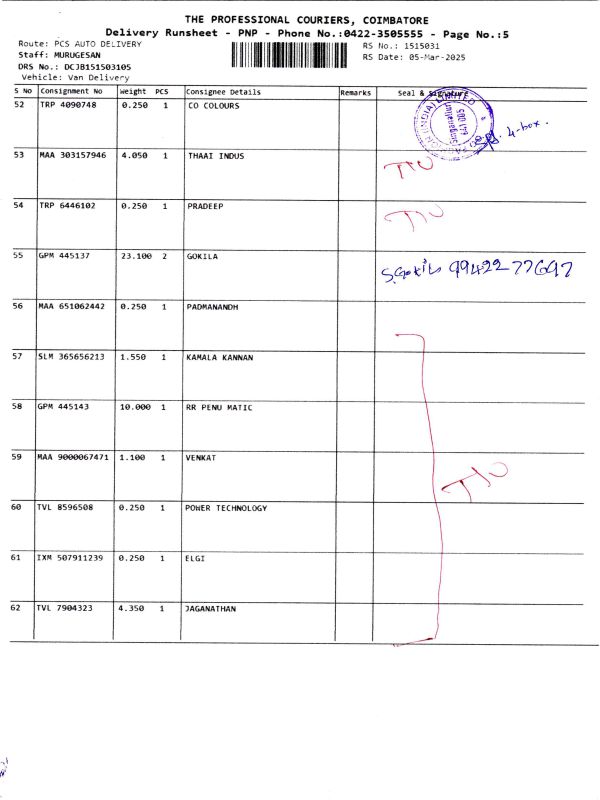 THE PROFESSIONAL COURIERS, COIMBATORE
Delivery Runsheet - PNP - Phone No.:0422-3505555 - Page No.:5
Route: PCS AUTO DELIVERY RS No.: 1515031
Staff: MURUGESAN RS Date: 05-Mar-2025
DRS No.: DCJB151503105
Vehicle: Van Delivery
S No Consignment No Weight PCS Consignee Details Remarks Seal & Signature
52 TRP 4090748 0.250 1 CO COLOURS 4-box.
53 MAA 303157946 4.050 1 THAAI INDUS
54 TRP 6446102 0.250 1 PRADEEP
55 GPM 445137 23.100 2 GOKILA S.Gokila 9942277697
56 MAA 651062442 0.250 1 PADMANANDH
57 SLM 365656213 1.550 1 KAMALA KANNAN
58 GPM 445143 10.000 1 RR PENU MATIC
59 MAA 9000067471 1.100 1 VENKAT
60 TVL 8596508 0.250 1 POWER TECHNOLOGY
61 IXM 507911239 0.250 1 ELGI
62 TVL 7904323 4.350 1 JAGANATHAN